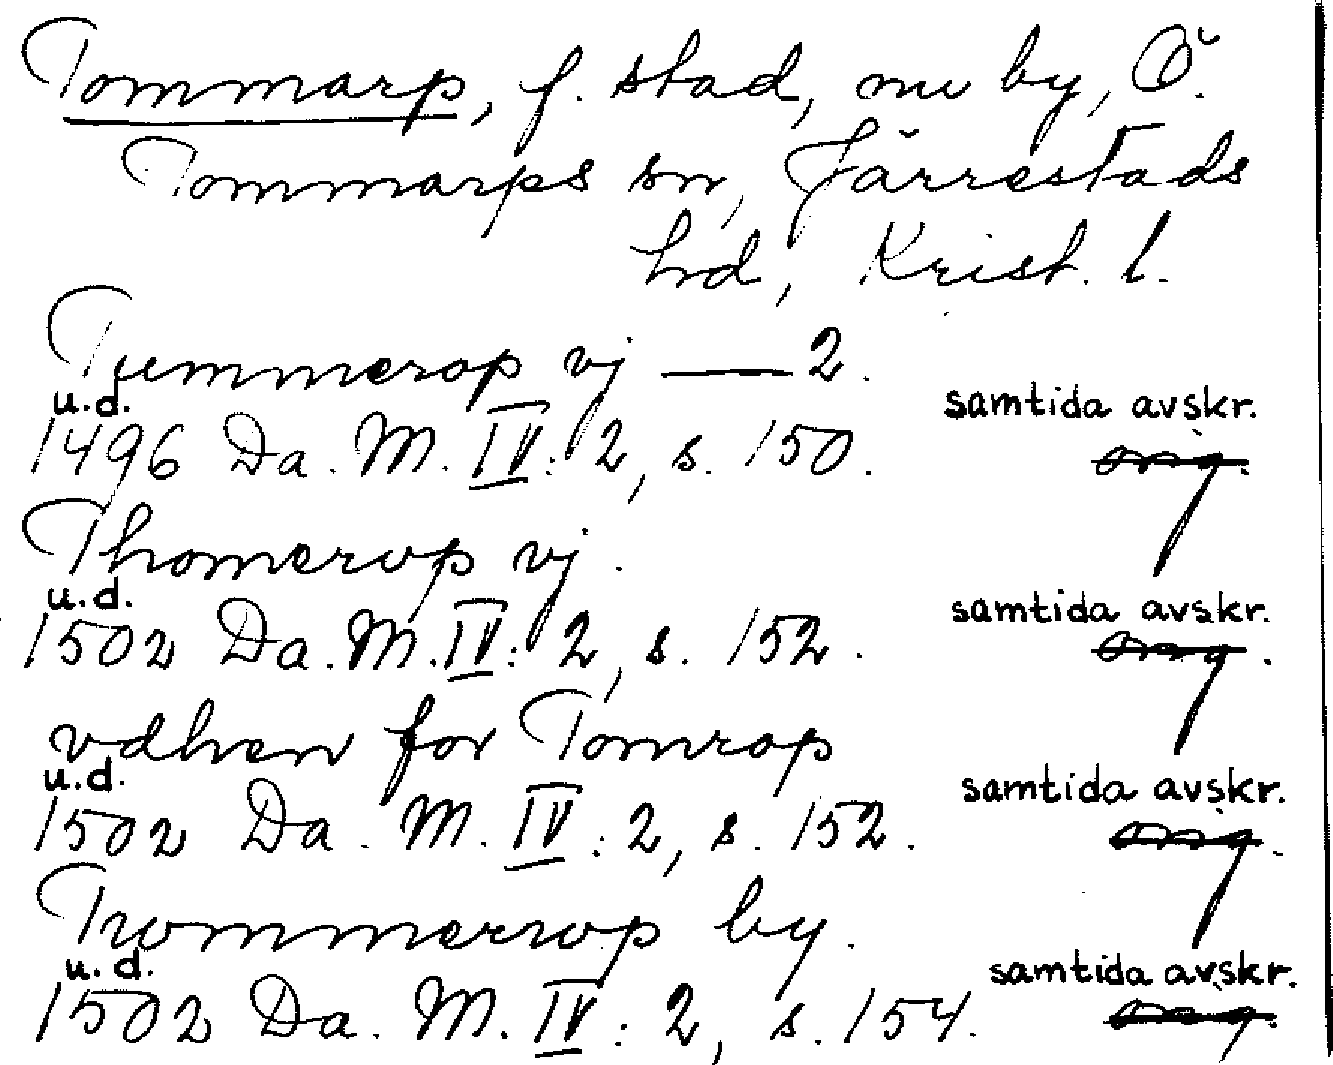 Tommarp, f. stad, nu by, Ö.
Tommarps sn, Järrestads
hrd, Krist. l.
Tummerop vj — 2.
u.d. samtida avskr.
1496 Da. M. IV: 2, s. 150. orig.
Thomerop vj.
u.d. samtida avskr.
1502 Da. M. IV: 2, s. 152. orig.
vdhen for Tomrop
u.d. samtida avskr.
1502 Da. M. IV: 2, s. 152. orig.
Trommerrop by.
u.d. samtida avskr.
1502 Da. M. IV: 2, s. 154. orig.